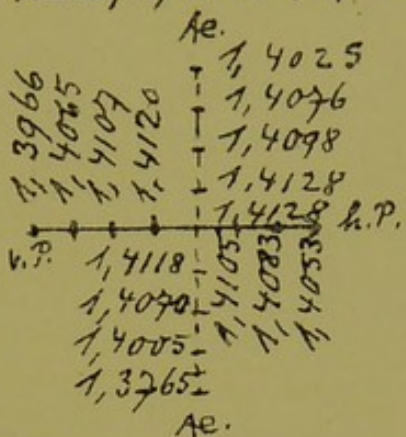 Ae.
1,4025
1,4076
1,4098
1,4128
1,4128 h.P.
1,3966
1,4065
1,4107
1,4120
v.P.
1,4118
1,4070
1,4005
1,3765
1,4105
1,4083
1,4053
Ae.